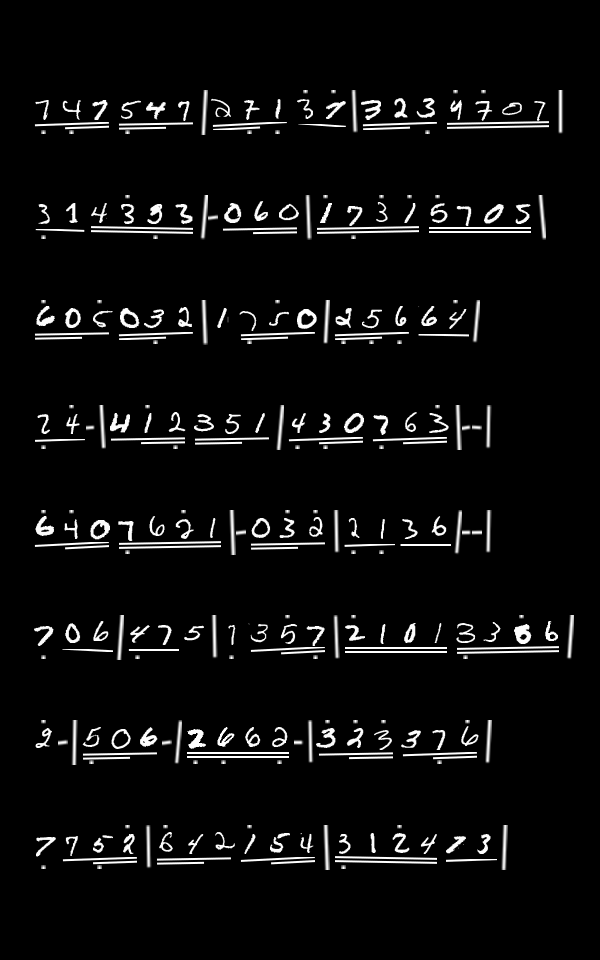 747547|27137|3239707|
314333|-060|17317 5705|
605032|1750|25664|
24-|412351|430763|--|
6407621|-032|2136|--|
706|475|1357|21013386|
2-|506-|2662-|323376|
7752|642154|312473|